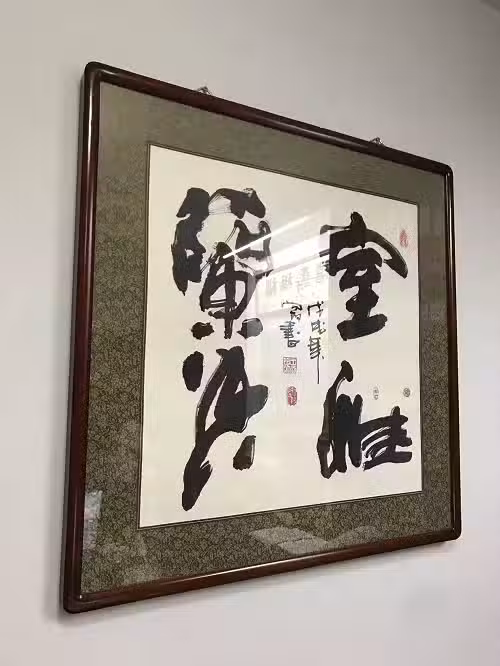 室雅
蘭香
戊戌年
書